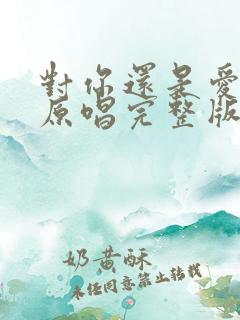 對你還是愛
原唱完整版
奶黄酥
未经同意禁止转载